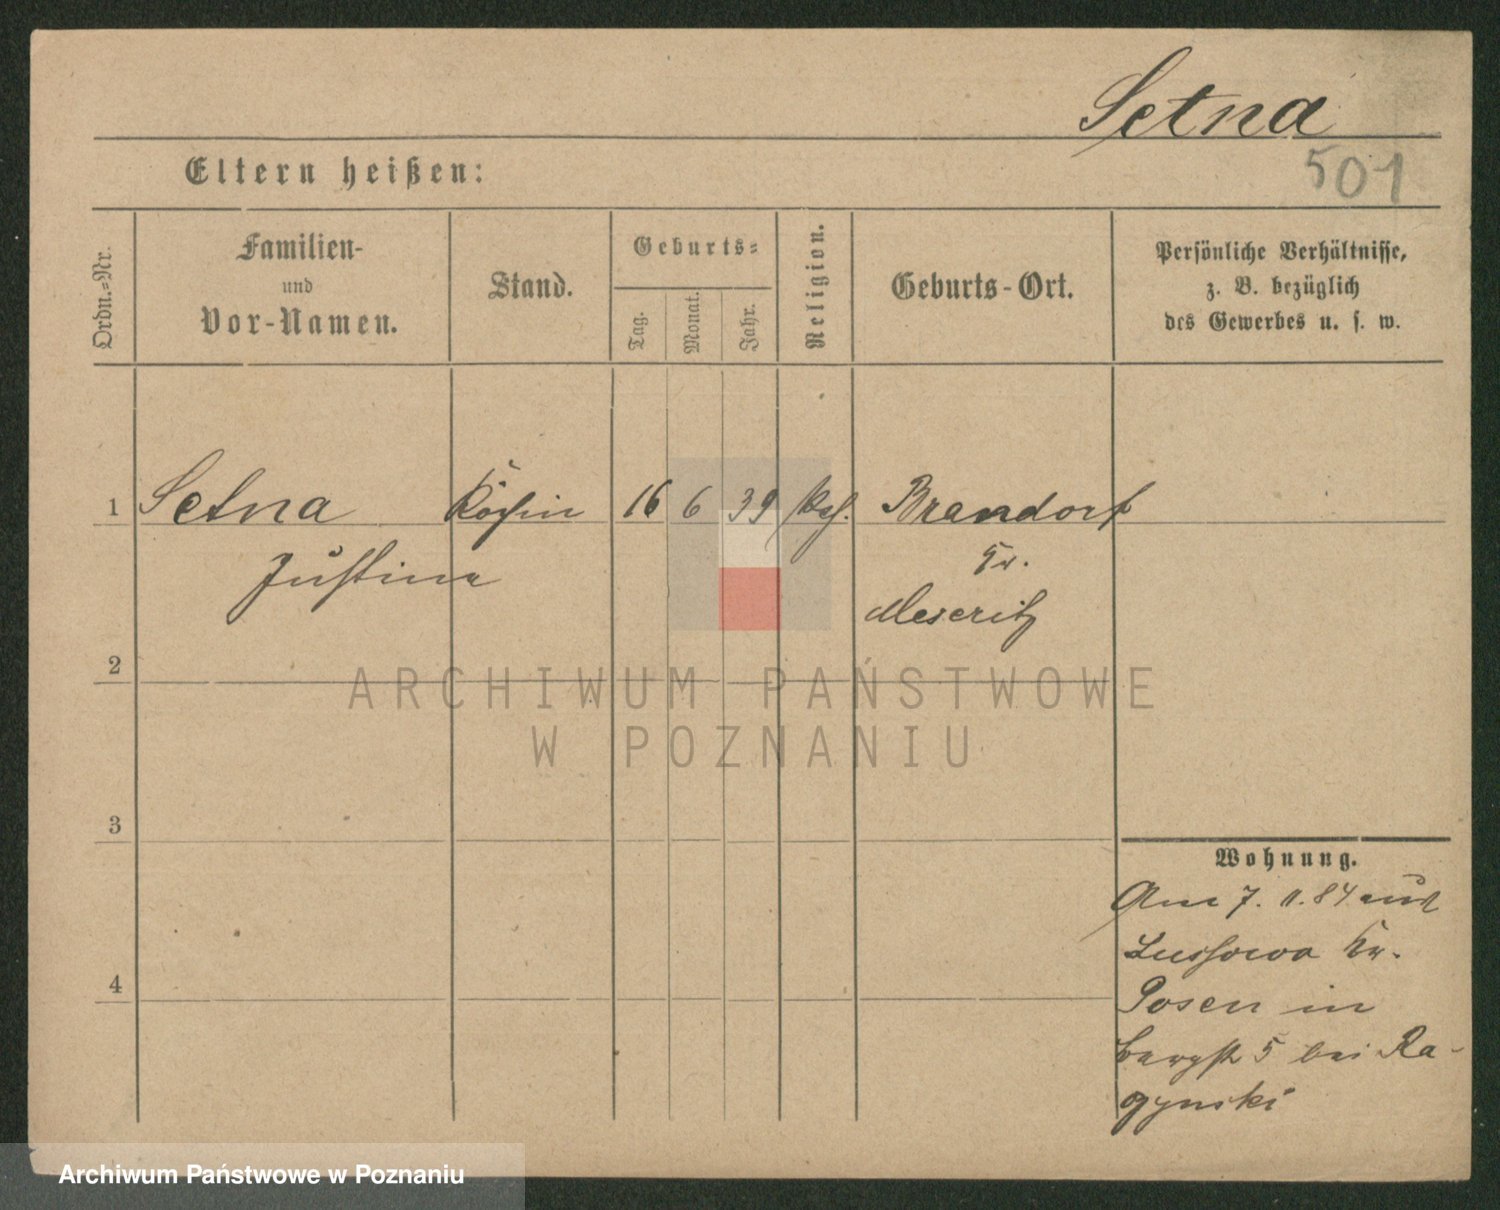 Setna
501
Eltern heißen:
Ordn.-Nr.
Familien-
und
Vor-Namen.
Stand.
Geburts-
Tag.
Monat.
Jahr.
Religion.
Geburts-Ort.
Persönliche Verhältnisse,
z. B. bezüglich
des Gewerbes u. s. w.
1 Setna Köchin 16 6 39 Brandorf
Justina Kr.
Meseritz
2
3
4
Wohnung.
Am 7. 11. 84 aus
Lussowo Kr.
Posen in
5 bei Ra-
gynski
ARCHIWUM PAŃSTWOWE
W POZNANIU
Archiwum Państwowe w Poznaniu